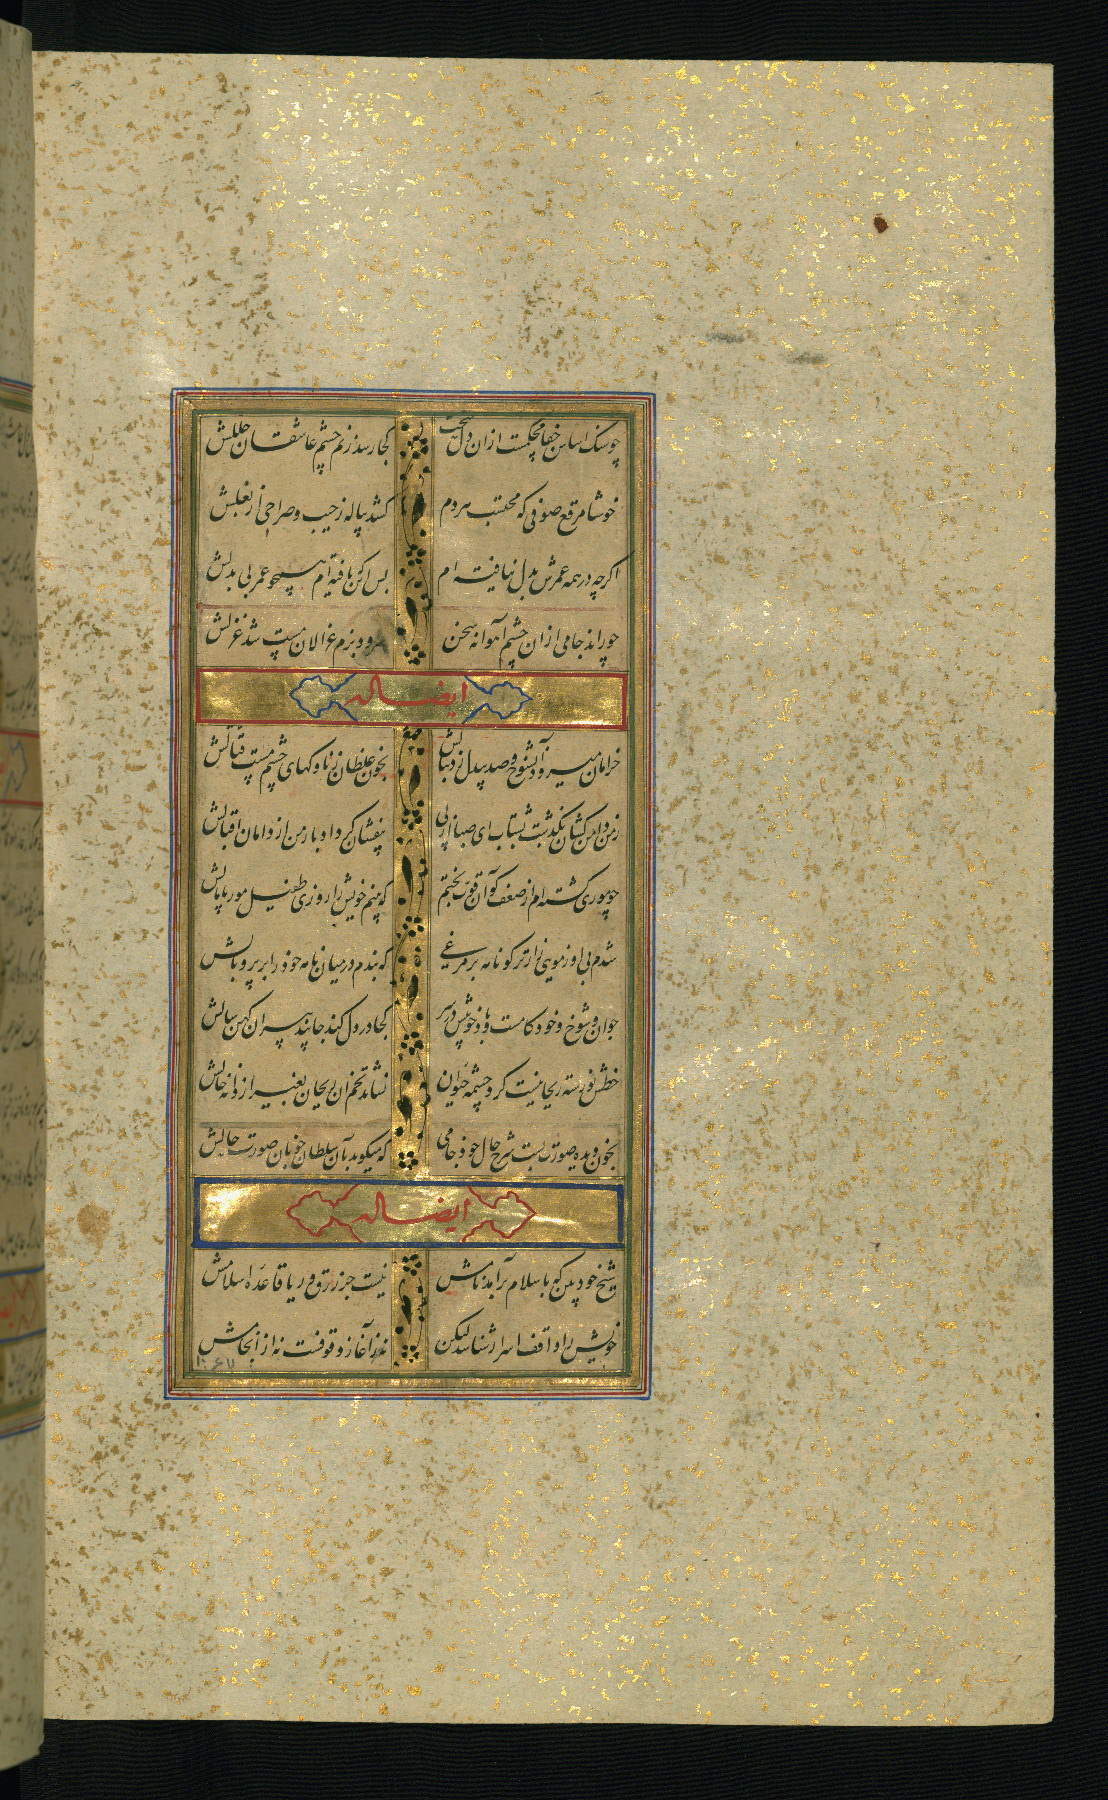 چو سنک اساس جفا محکمست ازان دل سخت کجا رسد ز نم چشم عاشقان خللش
خوشا مرقع صوفی که محتسب هر دم کشد پیاله ز جیب و صراحی از بغلش
اکرچه در همه عمرش بدل نیافته ام بس اکر یافته ام هیچو عمر بی بدلش
چو راند جامی ازان چشم آهوانه سخن سرود بزم غزالان مست شد غزلش
ایضا له
خرامان میرود آن شوخ و صد بیدل ز دنبالش بخون غلطان ز ناوکهای چشم مست قتالش
ز من دامن کشان بکذشت بشتاب ای صبا از پی بیفشان کرد ادبار من از دامان اقبالش
چو موری کشته ام از ضعف کو آن قوت بختم که بینم خویش را روزی طفیل مور پامالش
شدم بی او ز مویی زارتر کو نامه بر مرغی که بندم در میان نامه خود را بر پر و بالش
جوان و شوخ و خود کامست و باد خوشی در سر کجا در دل کند جا پند پیران کهن سالش
خطش نورسته ریحانیست کرد چشمه حیوان نشاند تخم ان ریحان بغیر از دانه خالش
بخون دیده صورت بست شرح حال خود جامی که میکوید بآن سلطان خوبان صورت حالش
ایضا له
شیخ خود بین که باسلام برآمد نامش نیست جز زرق و ریا قاعده اسلامش
خویش را واقف اسرار شناسد لیکن نه ز آغاز وقوفست نه از انجامش